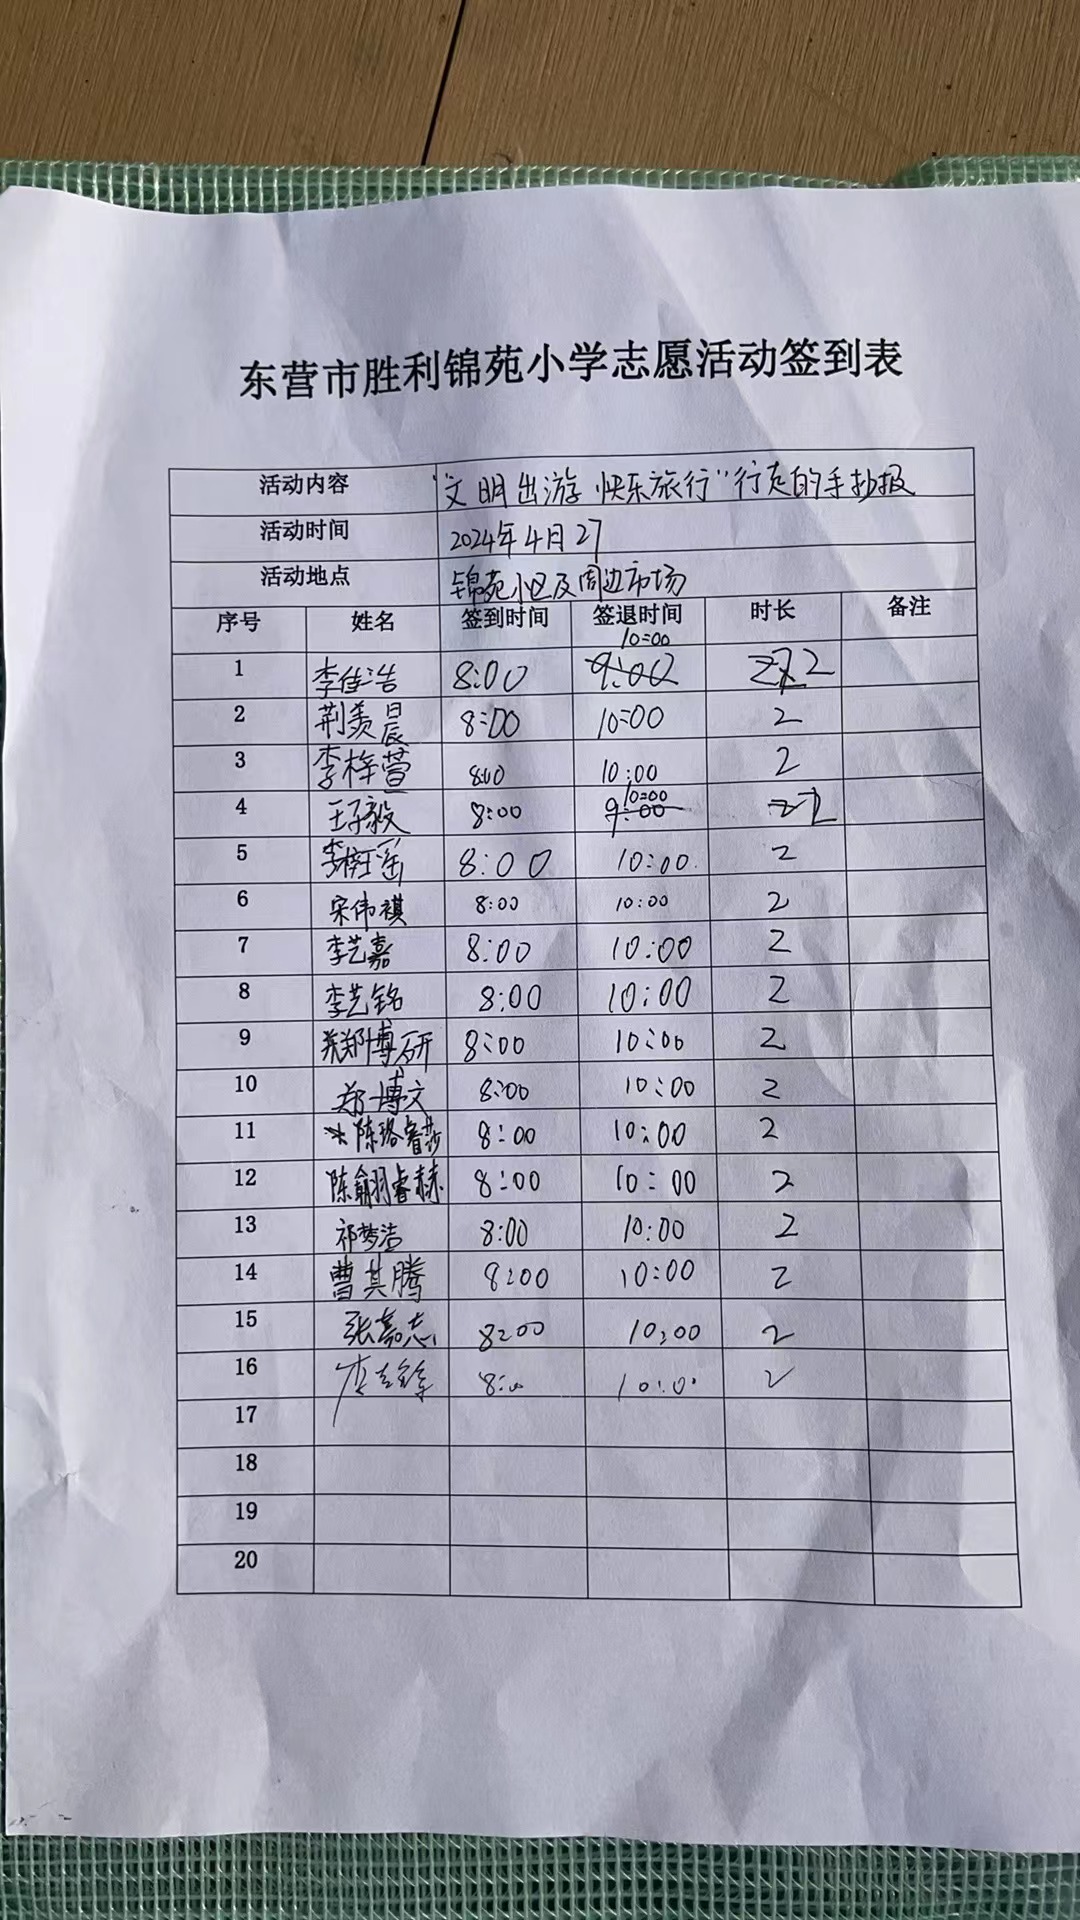 东营市胜利锦苑小学志愿活动签到表
活动内容 “文明出游 快乐旅行”行走的手抄报
活动时间 2024年4月27
活动地点 锦苑小区及周边市场
序号 姓名 签到时间 签退时间 时长 备注
1 李佳浩 8:00 10:00 2
2 荆羡晨 8:00 10:00 2
3 李梓萱 8:00 10:00 2
4 王子毅 8:00 10:00 2
5 李 瑶 8:00 10:00 2
6 宋伟祺 8:00 10:00 2
7 李艺嘉 8:00 10:00 2
8 李艺铭 8:00 10:00 2
9 郑博研 8:00 10:00 2
10 郑博文 8:00 10:00 2
11 陈珞睿莎 8:00 10:00 2
12 陈翩羽睿赫 8:00 10:00 2
13 祁梦洁 8:00 10:00 2
14 曹其腾 8:00 10:00 2
15 张嘉志 8:00 10:00 2
16 8:00 10:00 2
17
18
19
20